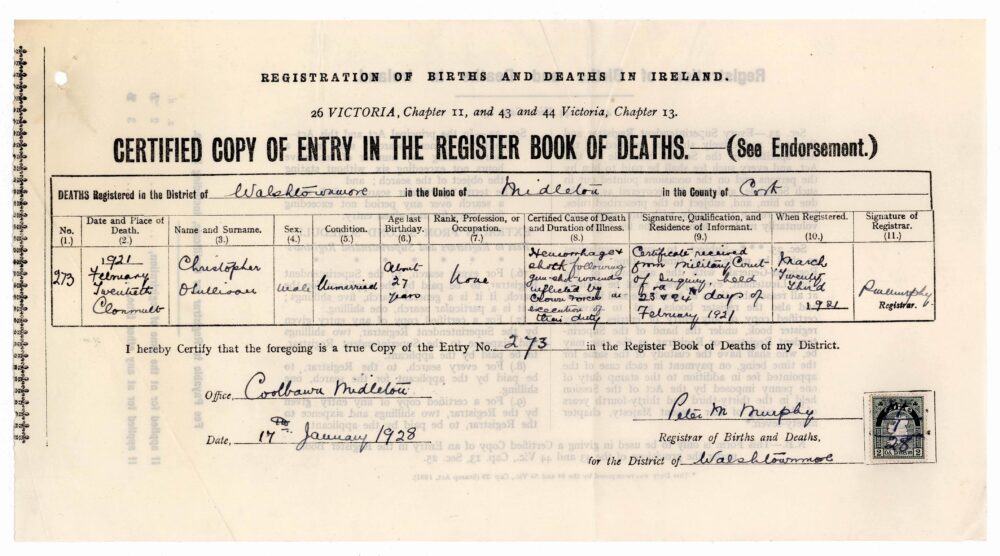 REGISTRATION OF BIRTHS AND DEATHS IN IRELAND.
26 VICTORIA, Chapter 11, and 43 and 44 Victoria, Chapter 13.
CERTIFIED COPY OF ENTRY IN THE REGISTER BOOK OF DEATHS.—(See Endorsement.)
DEATHS Registered in the District of Walshtownmore in the Union of Midleton in the County of Cork
No. (1.)
Date and Place of Death. (2.)
Name and Surname. (3.)
Sex. (4.)
Condition. (5.)
Age last Birthday. (6.)
Rank, Profession, or Occupation. (7.)
Certified Cause of Death and Duration of Illness. (8.)
Signature, Qualification, and Residence of Informant. (9.)
When Registered. (10.)
Signature of Registrar. (11.)
273
1921
February
Twentieth
Clonmult
Christopher
O'Sullivan
Male
Unmarried
About
27
years
None
Hemorrhage &
shock following
gun-shot wounds
inflicted by
Crown Forces in
execution of
their duty
Certificate received
from Military Court
of Inquiry, held
23 & 24 days of
February 1921
March
Twenty
Third
1921
P M Murphy
Registrar.
I hereby Certify that the foregoing is a true Copy of the Entry No. 273 in the Register Book of Deaths of my District.
Office, Coolbawn Midleton
Date, 17th January 1928
Peter M Murphy
Registrar of Births and Deaths,
for the District of Walshtownmore